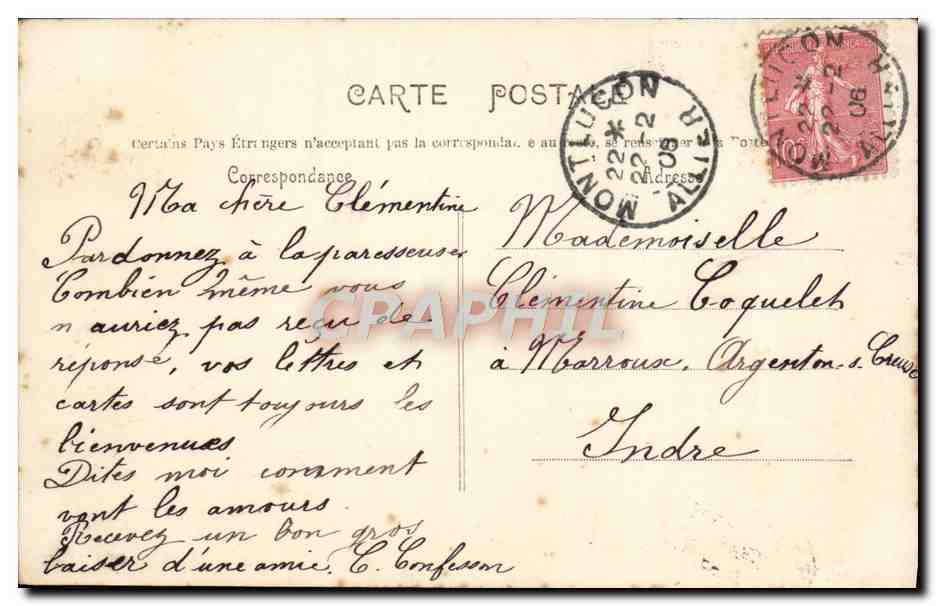 CARTE POSTALE
Certains Pays Étrangers n'acceptant pas la correspondance au recto, se renseigner à la Poste
Correspondance
Ma chère Clémentine
Pardonnez à la paresseuse
Combien même vous
n auriez pas reçu de
réponse, vos lettres et
cartes sont toujours les
bienvenues
Dites moi comment
vont les amours.
Recevez un bon gros
baiser d'une amie. C. Confesson
Adresse
Mademoiselle
Clémentine Coquelet
à Marroux. Argenton-s-Creuse
Indre
MONTLUÇON
22 *
22 -2
08
ALLIER
MONTLUÇON
22 *
22 -2
08
ALLIER
10
CPAPHIL